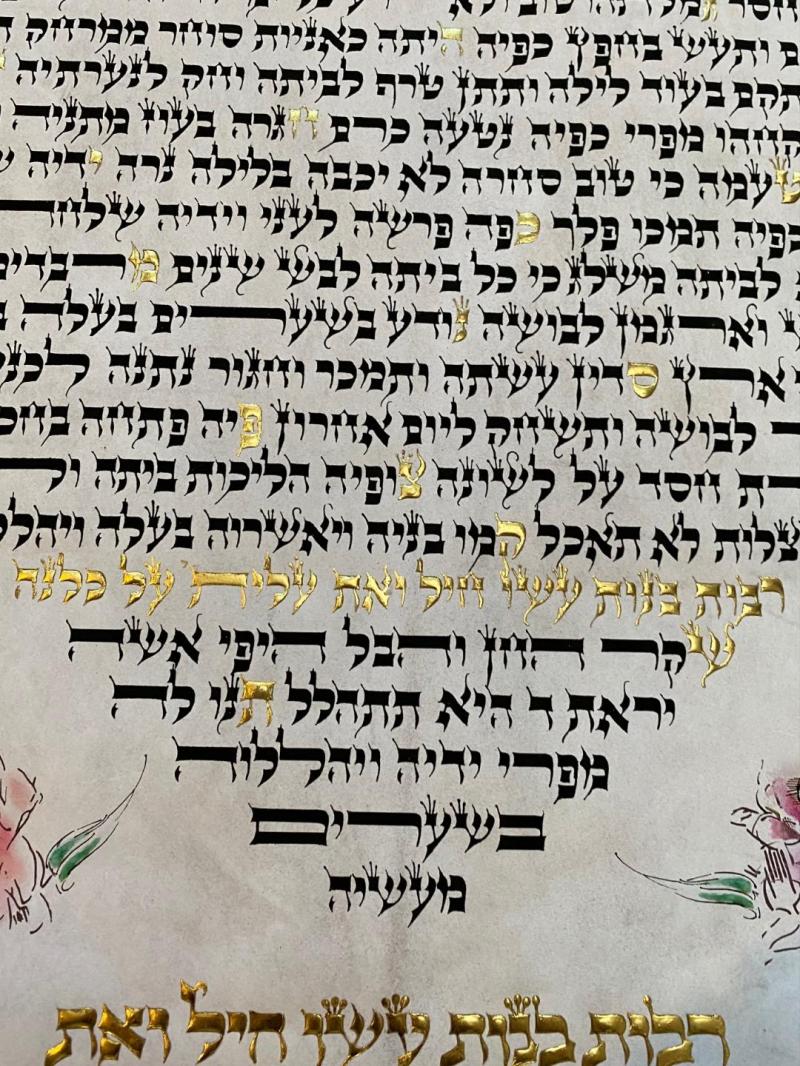 גמלתהו טוב ולא
ותעש בחפץ כפיה היתה כאניות סוחר ממרחק
תקם בעוד לילה ותתן טרף לביתה וחק לנערתיה
תקחהו מפרי כפיה נטעה כרם חגרה בעוז מתניה
טעמה כי טוב סחרה לא יכבה בלילה נרה ידיה
כפיה תמכו פלך כפה פרשה לעני וידיה שלחה
לביתה משלג כי כל ביתה לבש שנים מרבדים
וארגמן לבושה נודע בשערים בעלה
ארץ סדין עשתה ותמכר וחגור נתנה
לבושה ותשחק ליום אחרון פיה פתחה
חסד על לשונה צופיה הליכות ביתה
עצלות לא תאכל קמו בניה ויאשרוה בעלה
רבות בנות עשו חיל ואת עלית על כלנה
שקר החן והבל היפי אשה
יראת ד היא תתהלל תנו לה
מפרי ידיה ויהללוה
בשערים
מעשיה
רבות בנות עשו חיל ואת